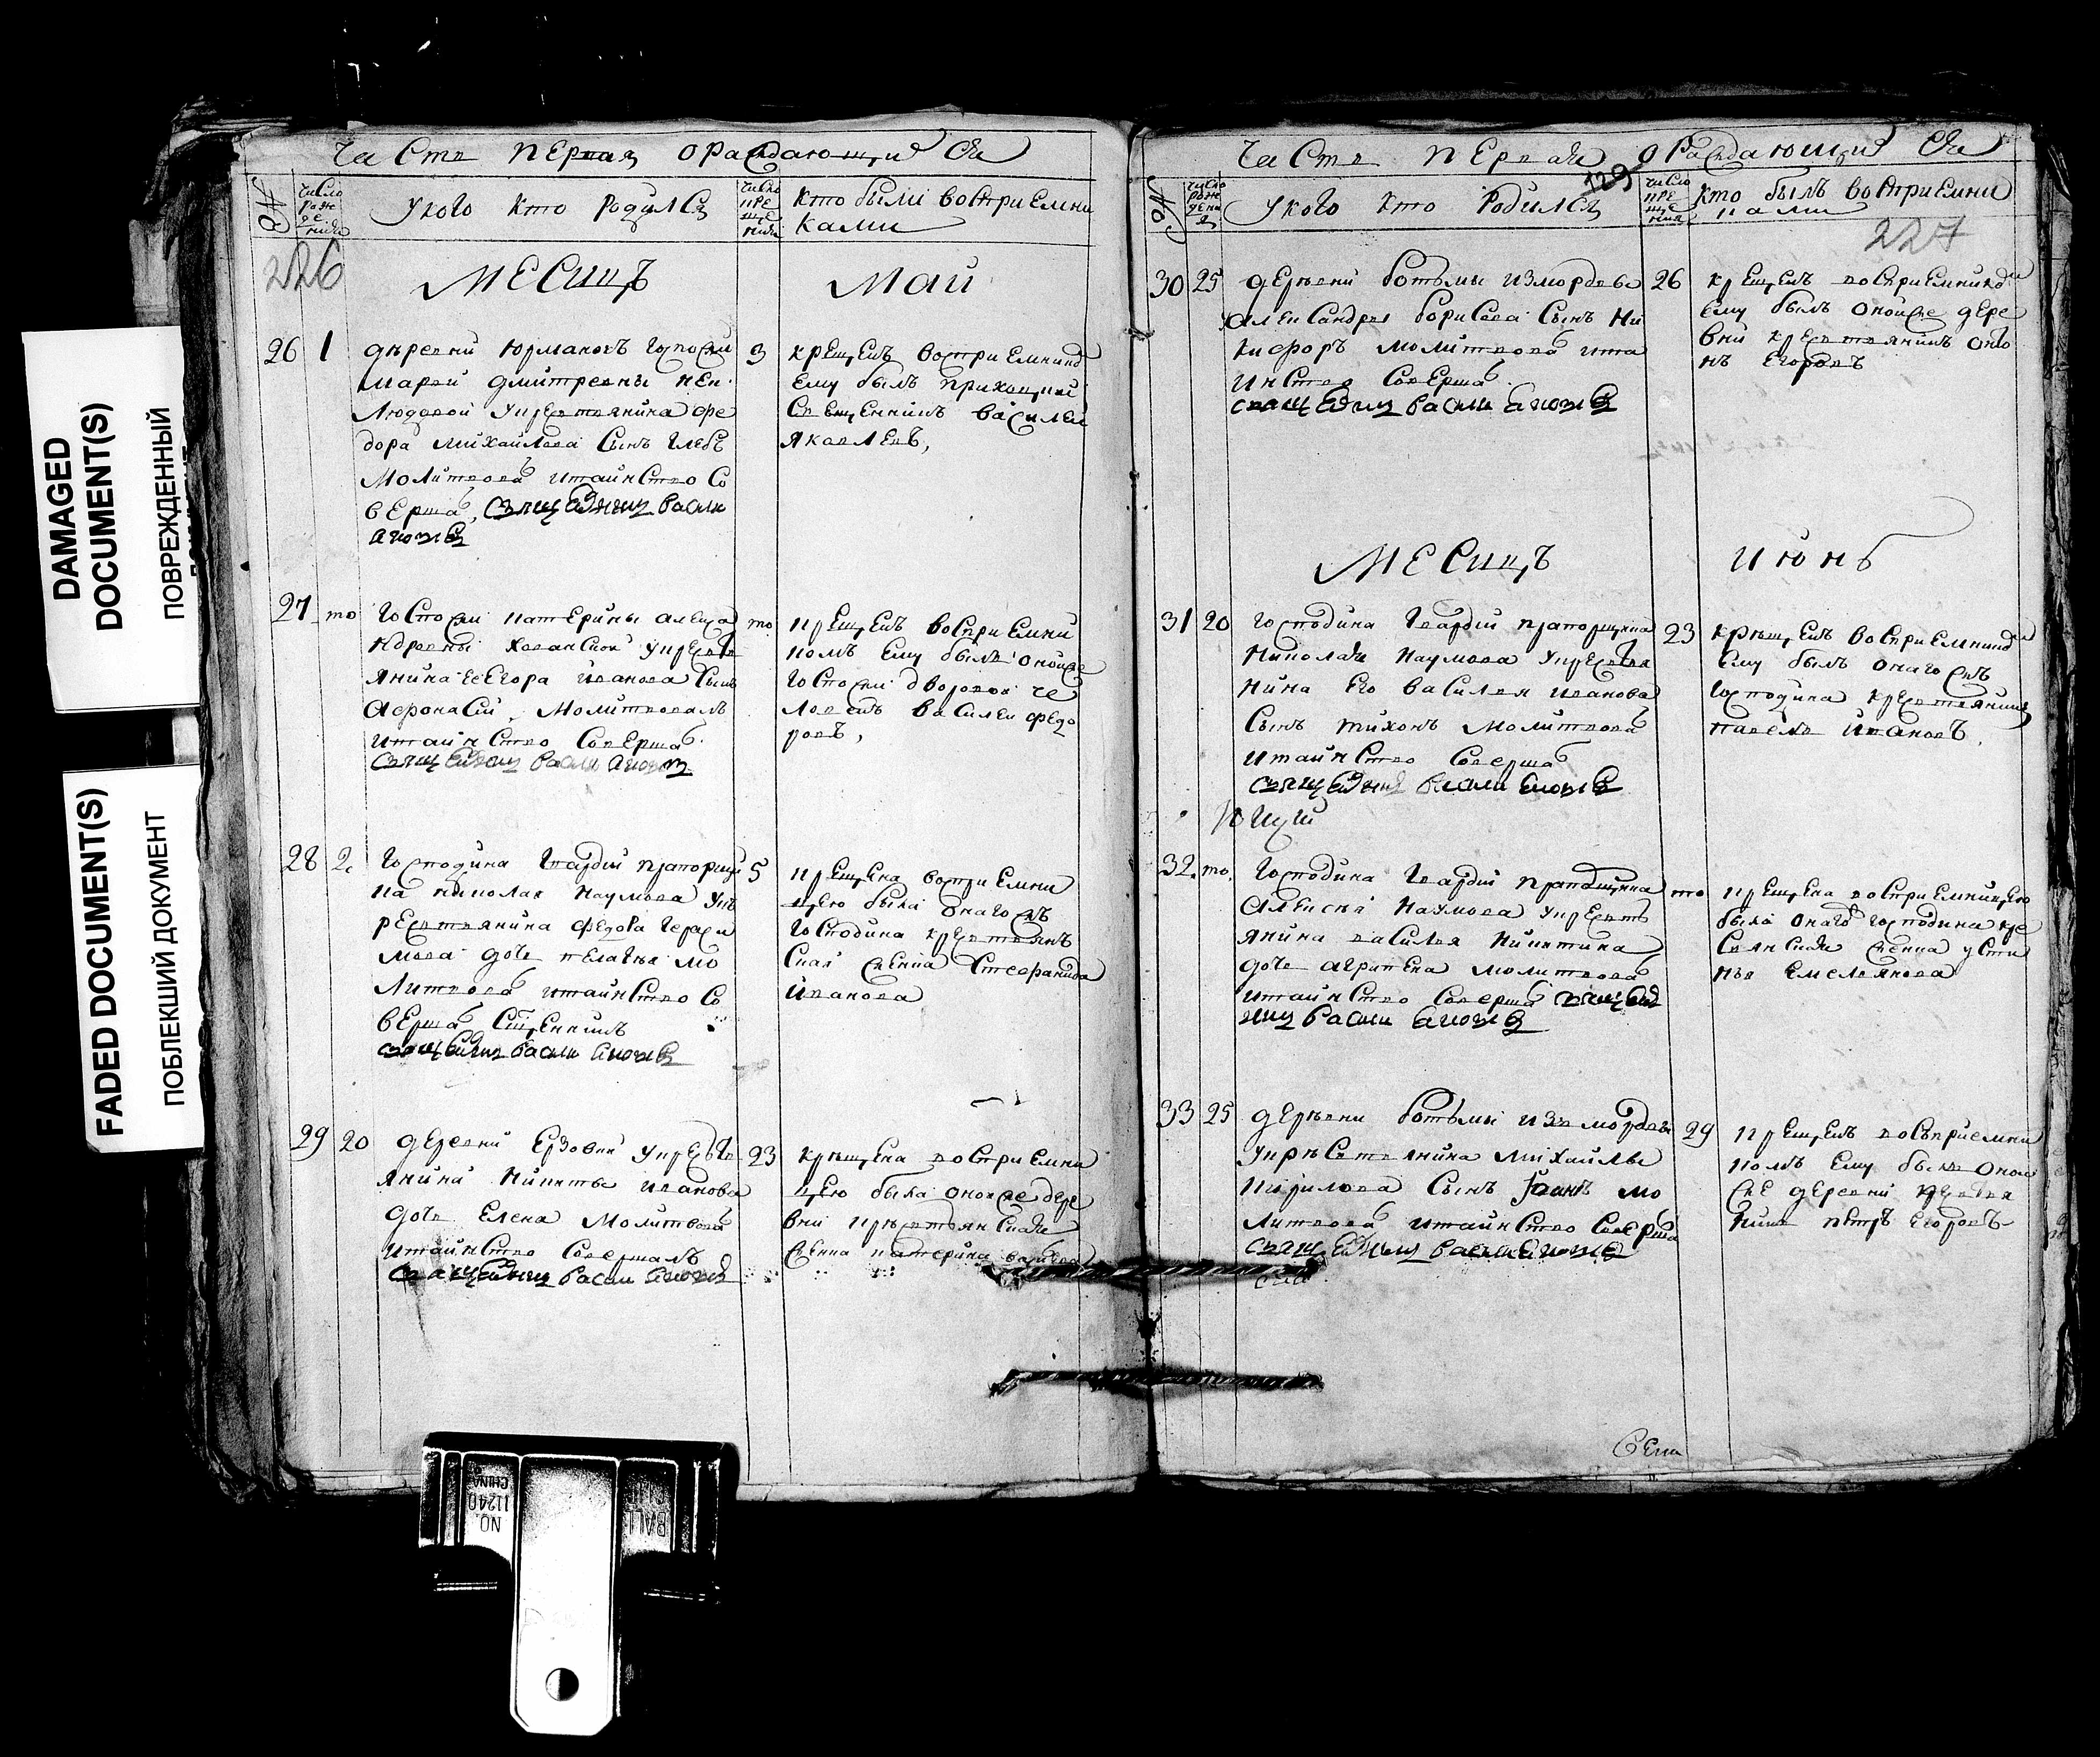 DAMAGED
DOCUMENT(S)
ПОВРЕЖДЕННЫЙ
FADED DOCUMENT(S)
ПОБЛЕКШИЙ ДОКУМЕНТ
Часть первая ораждающи ся
№
число
рож
де
ния
Укого кто родился
число
кре
ще
ния
кто были восприемни
ками
226
Месицъ Май
26 1
деревни Юрманокъ госпожи
Марьи дмитревны
укрестьянина фе
дора михайлова сынъ глебъ
молитвовалъ итаинство со
вершалъ священникъ васили
3
крещенъ восприемникъ
ему былъ приходцкой
священникъ василеи
яковлевъ,
27 то
госпожи катерины алекса
ндровны хованской укресть
янина ее егора иванова сынъ
афонасий молитвовалъ
итаинство совершалъ
священникъ васили
то
крещенъ восприемни
комъ ему былъ оной же
госпожи дворовой че
ловекъ василеи федо
ровъ,
28 2
господина гвардии прапорщи
ка николая наумова ук
рестьянина федора гераси
мова дочь пелагья мо
литвовалъ итаинство со
вершалъ священникъ
священникъ васили
5
крещена восприемни
цею была онаго жъ
господина крестьянъ
ская женка стефанида
иванова
29 20
деревни Ерзовки укресть
янина никиты иванова
дочь елена молитвовалъ
итаинство совершалъ
священникъ васили
23
крещена восприемни
цею была оной же дере
вни крестьянская
женка катерина
Часть первая ораждающи ся
129
№
число
рож
дени
я
Укого кто родился
число
кре
ще
ния
кто былъ восприемни
ками
227
30 25
деревни ботьмы измордвы
александра борисова сынъ ни
кифоръ молитвовалъ ита
инство совершалъ
священникъ васили
26
крещенъ восприемникомъ
ему былъ оной же дере
вни крестьянинъ
нъ егоровъ
Месицъ Июнь
31 20
господина гвардии прапорщика
николая наумова укрестья
нина его василья иванова
сынъ тихонъ молитвовалъ
итаинство совершалъ
священникъ васили
23
крещенъ восприемникомъ
ему былъ онаго жъ
господина крестьянинъ
павелъ ивановъ
32. то.
господина гвардии прапорщика
алексея наумова укресть
янина василья никитина
дочь агрипена молитвовалъ
итаинство совершалъ священ
никъ васили
то
крещена восприемницею
была онаго господина кре
стьянская женка усти
нья емельянова
33 25
деревни ботьмы изъ мордвы
укрестьянина михайлы
кирилова сынъ Iоанъ мо
литвовалъ итаинство соверша
священникъ васили
29
крещенъ восприемни
комъ ему былъ оной
же деревни крестья
нинъ петръ егоровъ
NO.
11240
CHINA
BALL